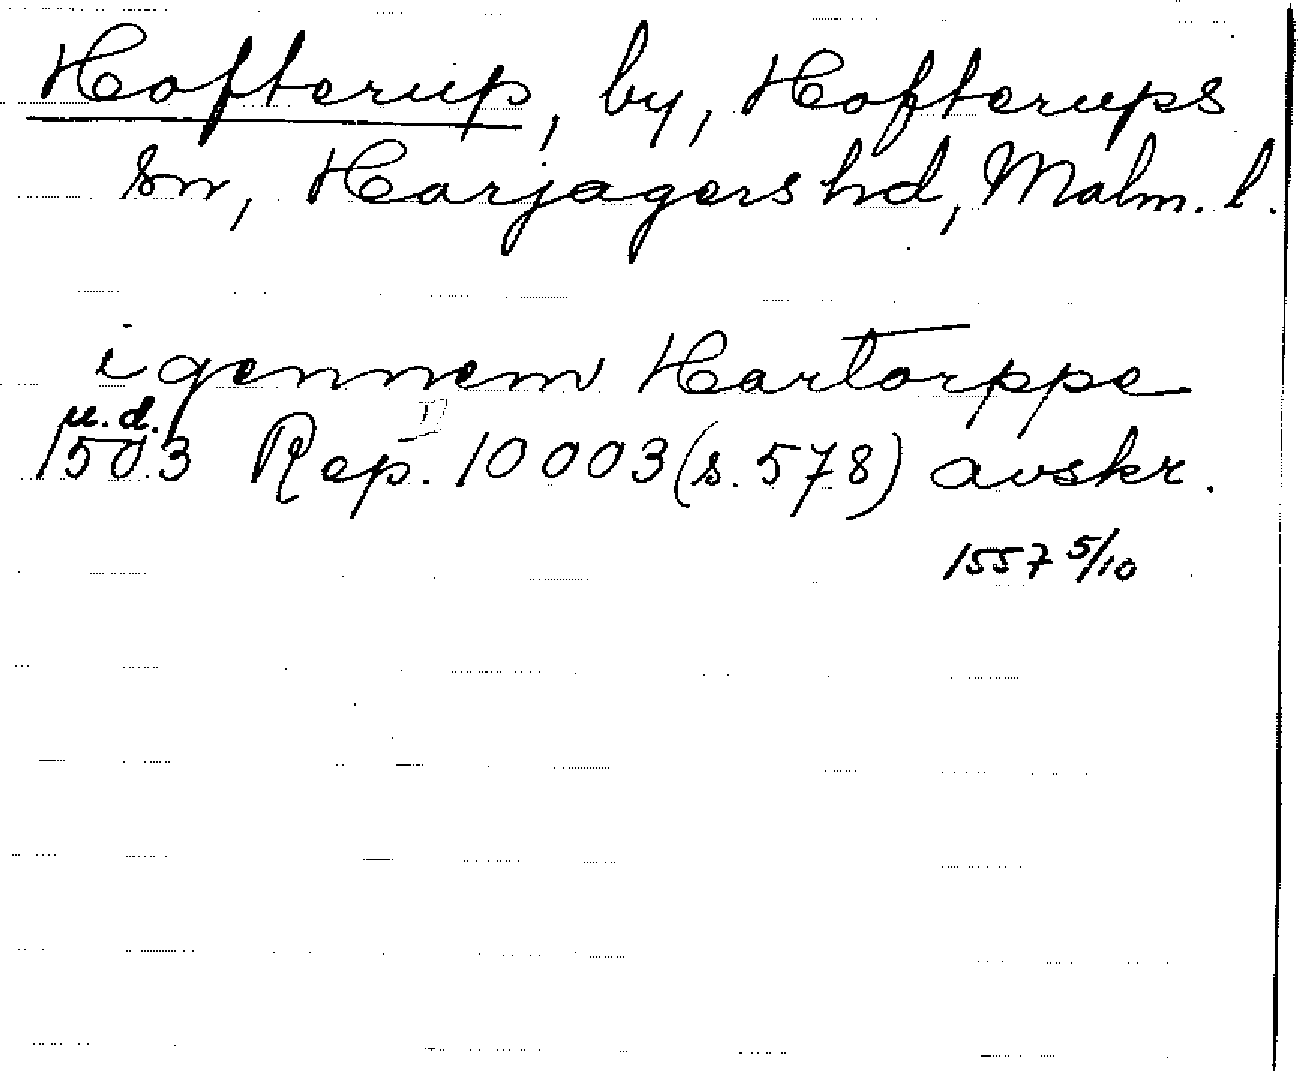 Hofterup, by, Hofterups
sn, Harjagers hd, Malm. l.
igennem Hartorppe
u.d.
1503 Rep. 10003 (s. 578) avskr.
1557 5/10